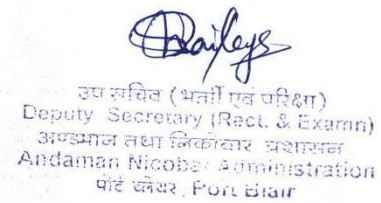 उप सचिव (भर्ती एवं परिक्षा)
Deputy Secretary (Rect. & Examn)
अण्डमान तथा निकोबार प्रशासन
Andaman Nicobar Administration
पोर्ट ब्लेयर, Port Blair